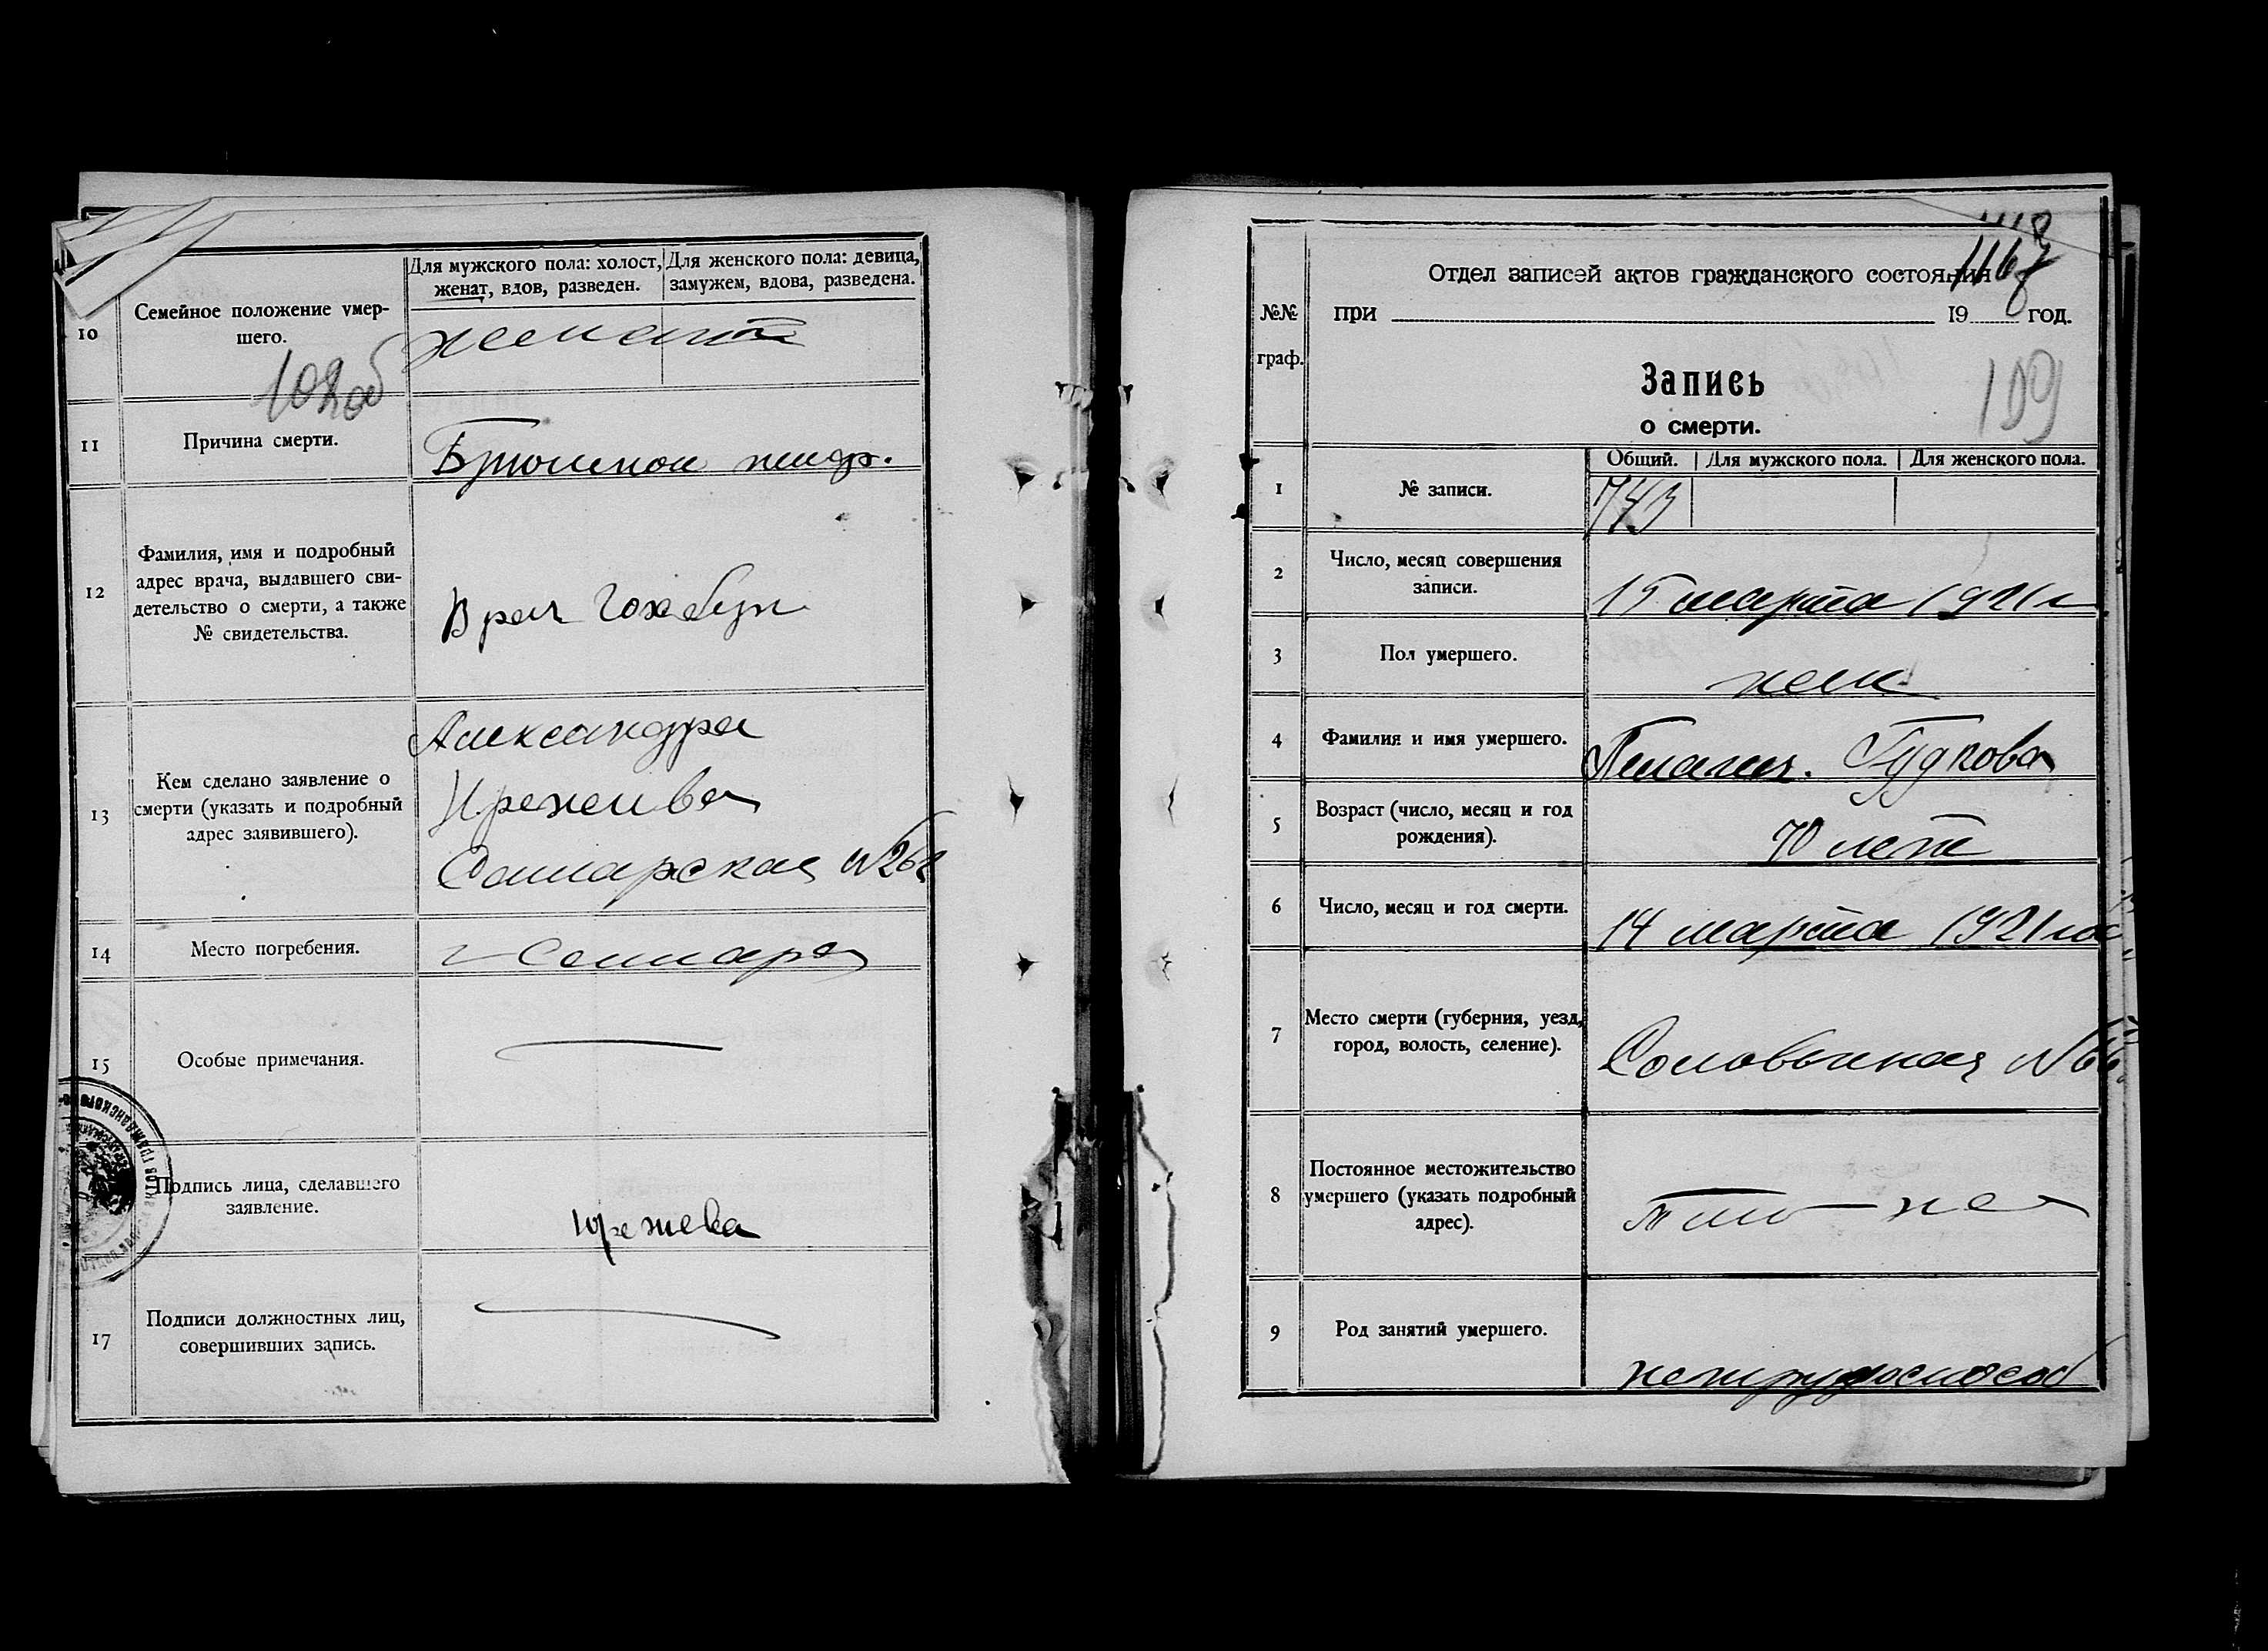 10
Семейное положение умер-
шего.
Для мужского пола: холост,
женат, вдов, разведен.
Для женского пола: девица,
замужем, вдова, разведена.
женат
102об
11
Причина смерти.
Брюшной тиф.
12
Фамилия, имя и подробный
адрес врача, выдавшего сви-
детельство о смерти, а также
№ свидетельства.
Врач
13
Кем сделано заявление о
смерти (указать и подробный
адрес заявившего).
Александра
Самарская №262
14
Место погребения.
г Самара
15
Особые примечания.
Подпись лица, сделавшего
заявление.
17
Подписи должностных лиц,
совершивших запись.
1167
Отдел записей актов гражданского состояния
№№
граф.
при 19 год.
109
Запись
о смерти.
Общий. Для мужского пола. Для женского пола.
1
№ записи.
743
2
Число, месяц совершения
записи.
15 марта 1921г
3
Пол умершего.
жен
4
Фамилия и имя умершего.
Гудкова
5
Возраст (число, месяц и год
рождения).
70 лет
6
Число, месяц и год смерти.
14 марта 1921
7
Место смерти (губерния, уезд,
город, волость, селение).
8
Постоянное местожительство
умершего (указать подробный
адрес).
там-же
9
Род занятий умершего.
нетрудоспособ